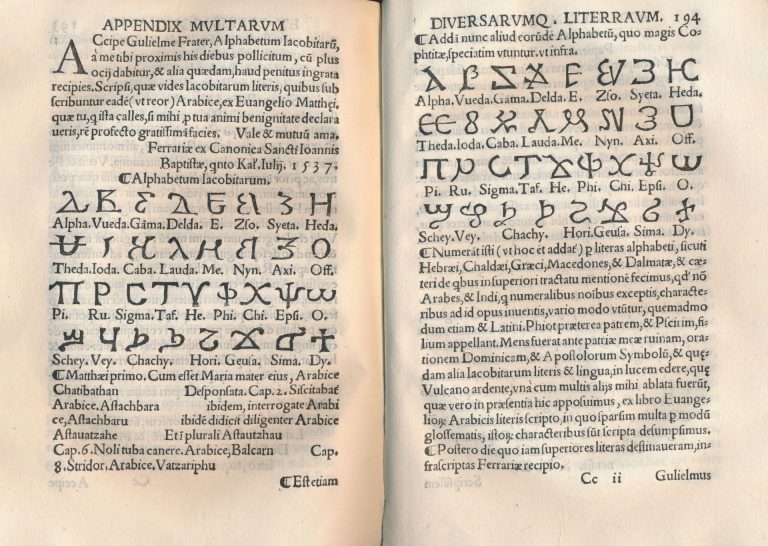 APPENDIX MVLTARVM
ACcipe Gulielme Frater, Alphabetum Iacobitarũ,
à me tibi proximis his diebus pollicitum, cũ plus
ocij dabitur, & alia quædam, haud penitus ingrata
recipies. Scripsi, quæ vides Iacobitarum literis, quibus sub
scribuntur eadẽ (vt reor) Arabice, ex Euangelio Matthęi.
quæ tu, q ista calles, si mihi ꝓ tua animi benignitate declara
ueris, rẽ profecto gratissimã facies. Vale & mutuũ ama.
Ferrariæ ex Canonica Sancti Ioannis
Baptistæ, qnto Kal. Iulij. 1537.
¶Alphabetum Iacobitarum.
Alpha. Vueda. Gãma. Delda. E. Zſo. Syeta. Heda.
Theda. Ioda. Caba. Lauda. Me. Nyn. Axi. Off.
Pi. Ru. Sigma. Taf. He. Phi. Chi. Epſi. O.
Schey. Vey. Chachy. Hori. Geuſa. Sima. Dy.
¶Matthæi primo. Cum eſſet Maria mater eius, Arabice
Chatibathan Deſponſata. Cap. 2. Siſcitabať
Arabice. Aſtachbara ibidem, interrogate Arabi
ce, Aſtachbaru ibidẽ didicit diligenter Arabice
Aſtauatzahe Et i plurali Aſtautzhau
Cap. 6. Noli tuba canere. Arabice, Balcarn Cap.
8. Stridor. Arabice. Vatzariphu
¶Eſt etiam
DIVERSARVMQ. LITERRAVM. 194
¶Addã nunc aliud eorũdẽ Alphabetũ, quo magis Co-
phtitæ, ſpeciatim vtuntur. vt infra.
Alpha. Vueda. Gãma. Delda. E. Zſo. Syeta. Heda.
Theda. Ioda. Caba. Lauda. Me. Nyn. Axi. Off.
Pi. Ru. Sigma. Taf. He. Phi. Chi. Epſi. O.
Schey. Vey. Chachy. Hori. Geuſa. Sima. Dy.
¶Numerãt iſti (vt hoc et addaƒ) ꝑ literas alphabeti, ſicuti
Hebræi, Chaldæi, Græci, Macedones, & Dalmatæ, & cæ-
teri de qbus in ſuperiori tractatu mentionẽ fecimus, qđ nõ
Arabes, & Indi, q numeralibus noibus exceptis, characte-
ribus ad id opus inuentis, vario modo vtũtur, quemadmo
dum etiam & Latini. Phiot præterea patrem, & Pſcirim, fi-
lium appellant. Mens fuerat ante patriæ meæ ruinam, ora-
tionem Dominicam, & Apoſtolorum Symbolũ, & quę-
dam alia Iacobitarum literis & lingua, in lucem edere, quę
Vulcano ardente, vna cum multis alijs mihi ablata fuerũt,
quæ vero in præſentia hic appoſuimus, ex libro Euange-
lioꝝ Arabicis literis ſcripto, in quo ſparſim multa ꝑ modũ
gloſſematis, iſtoꝝ characteribus ſũt ſcripta deſumpſimus.
¶Poſtero die quo iam ſuperiores literas deſtinaueram, in-
fraſcriptas Ferrariæ recipio.
Cc ii Gulielmus